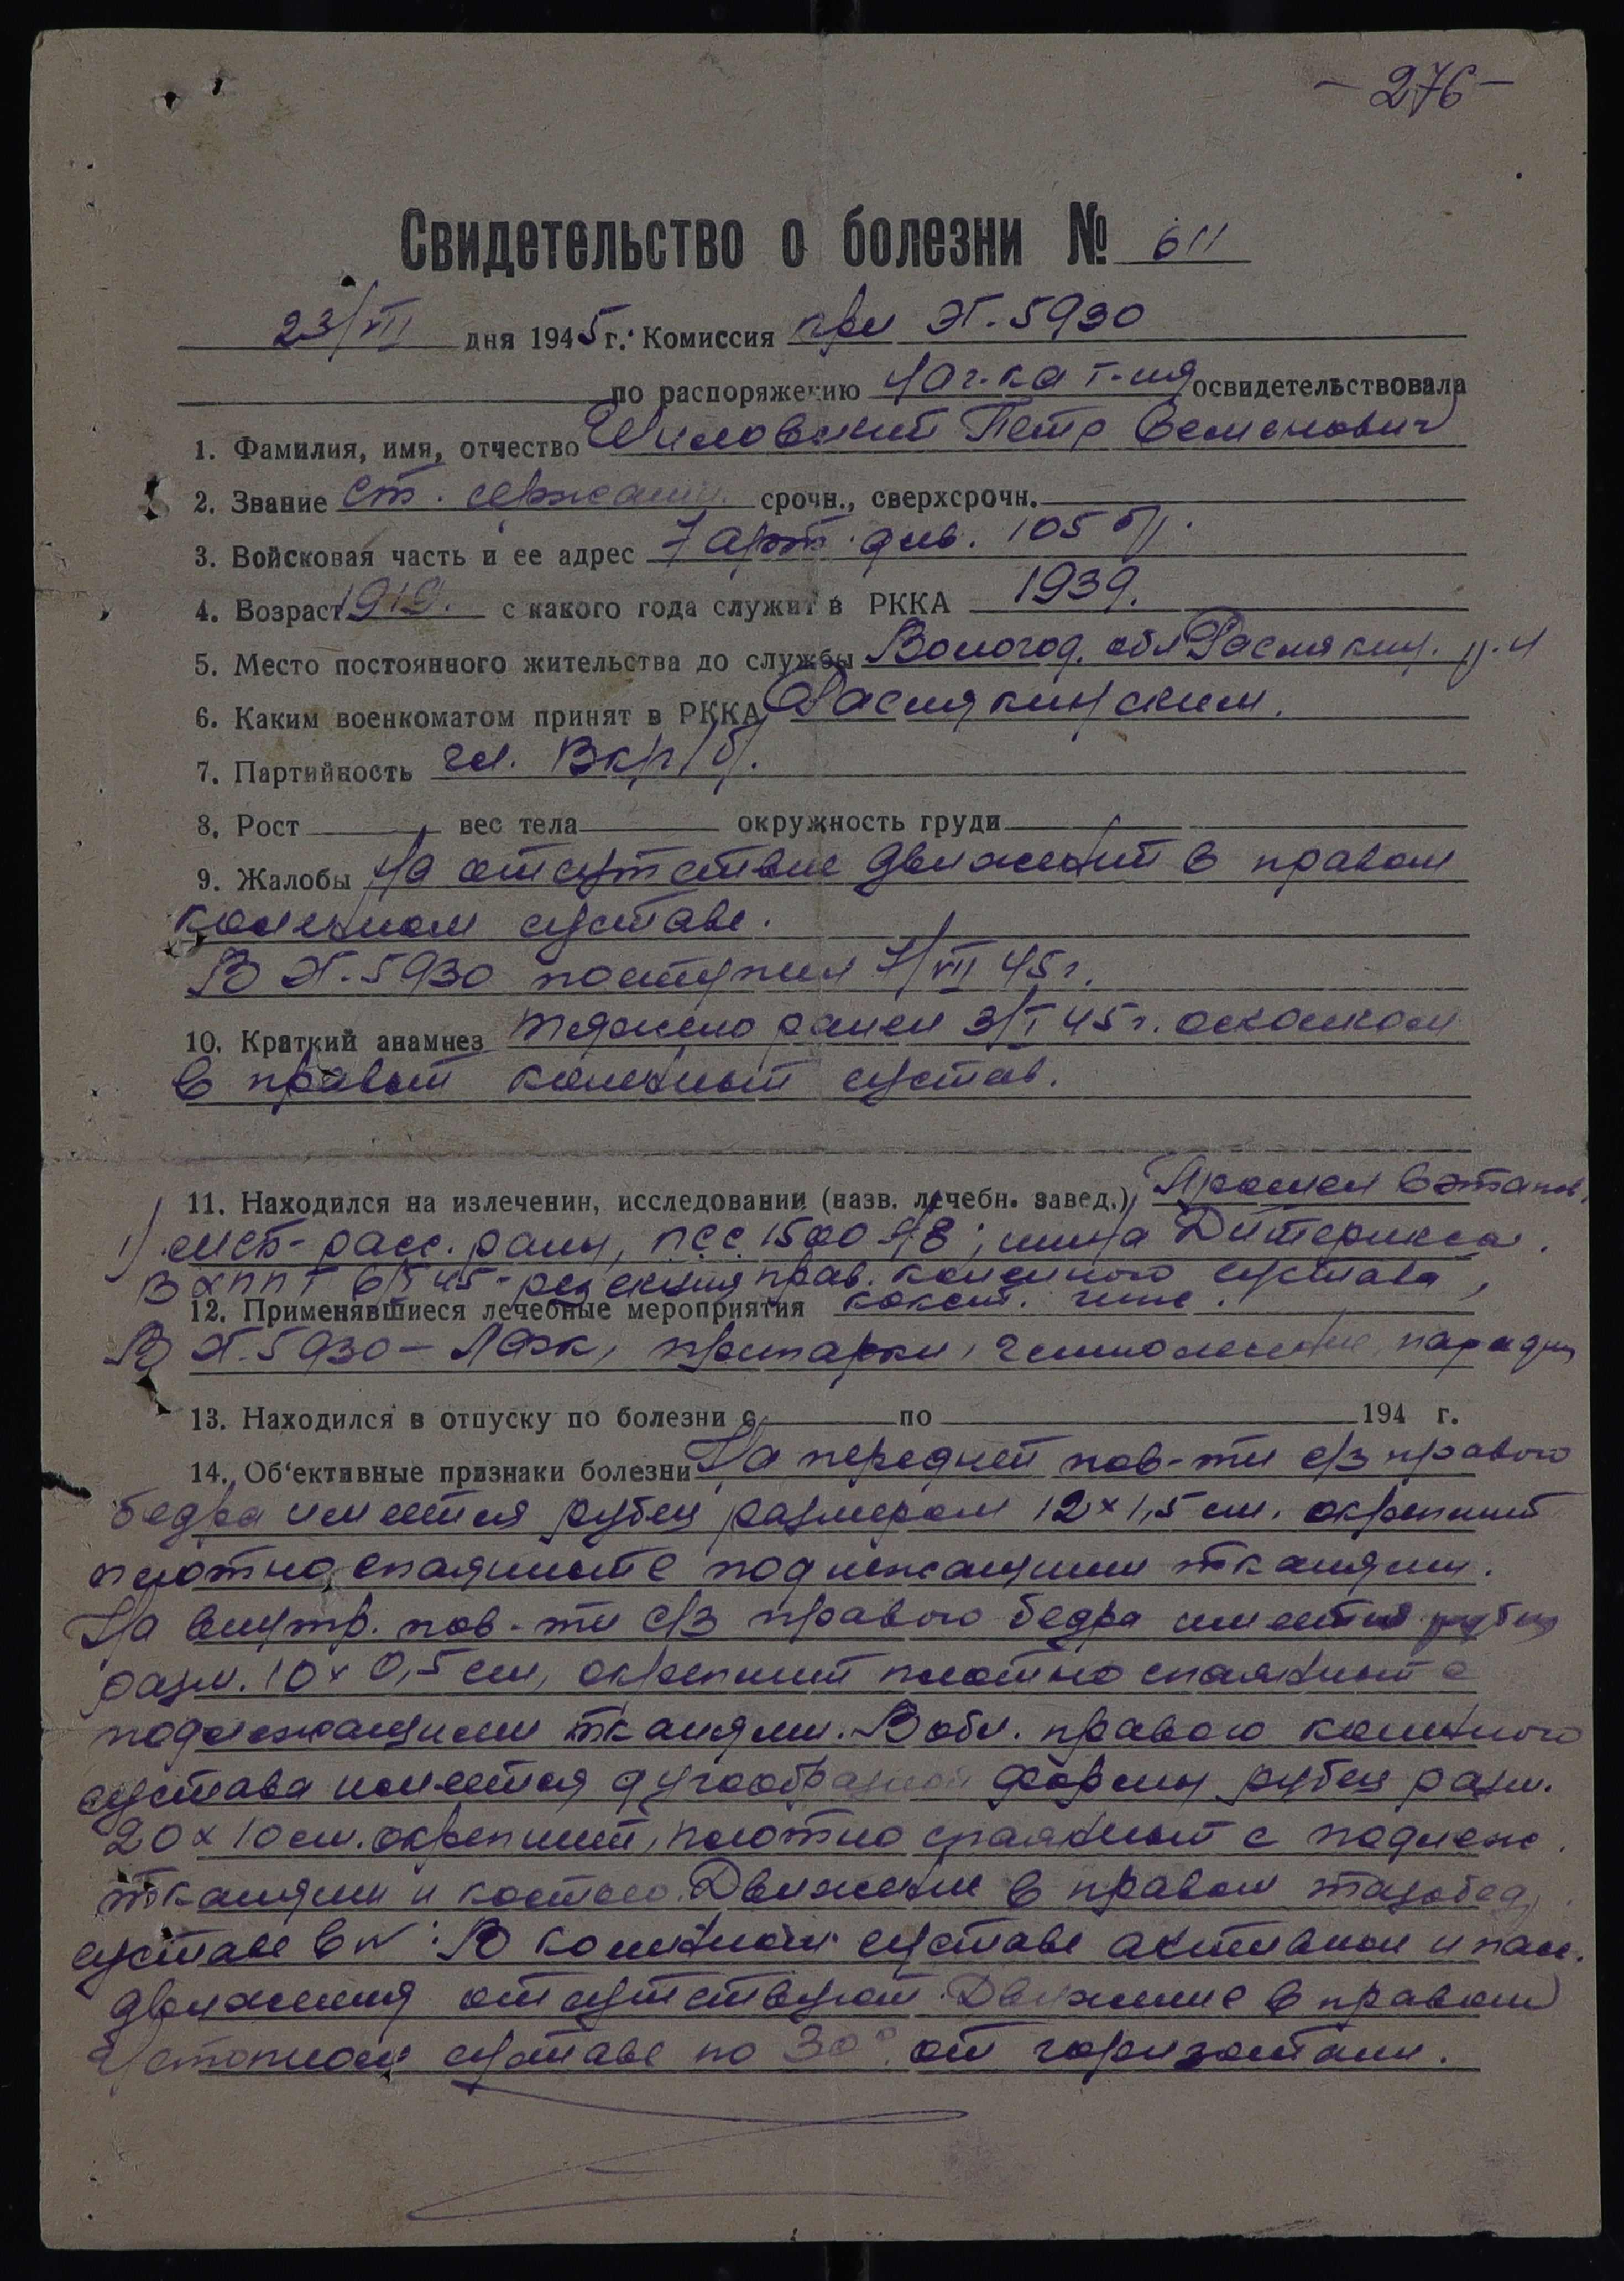 - 276 -
Свидетельство о болезни № 611
23/VII дня 1945 г. Комиссия при ЭГ. 5930
по распоряжению нач-ка г-ля освидетельствовала
1. Фамилия, имя, отчество Шиловский Петр Семенович
2. Звание ст. сержант срочн., сверхсрочн.
3. Войсковая часть и ее адрес 7 арт. див. 105 б/.
4. Возраст 1919. с какого года служит в РККА 1939.
5. Место постоянного жительства до службы Вологод. обл р-н
6. Каким военкоматом принят в РККА
7. Партийность чл. ВКП/б/.
8. Рост вес тела окружность груди
9. Жалобы На отсутствие движений в правом
коленном суставе.
В ЭГ. 5930 поступил 7/VII 45 г.
10. Краткий анамнез тяжело ранен 3/I 45 г. осколком
в правый коленный сустав.
11. Находился на излечении, исследовании (назв. лечебн. завед.) Прошел в этапов.
1) МСБ- расс. раны, ПСС 1500 АЕ; шина Дитерихса.
В ХППГ 6/I 45 - резекция прав. коленного сустава,
12. Применявшиеся лечебные мероприятия коксит. гипс.
В ЭГ. 5930 - ЛФК, припарки, парафин
13. Находился в отпуску по болезни с по 194 г.
14. Об'ективные признаки болезни На передней пов-ти с/з правого
бедра имеется рубец размером 12 x 1,5 см. окрепший
плотно спаянный с подлежащими тканями.
На внутр. пов-ти с/з правого бедра имеется рубец
разм. 10 x 0,5 см, окрепший плотно спаянный с
подлежащими тканями. В обл. правого коленного
сустава имеется дугообразной формы рубец разм.
20 x 10 см. окрепший, плотно спаянный с подлеж.
тканями и костью. Движение в правом тазобед.
суставе в N. В коленном суставе активные и пас.
движения отсутствуют. Движение в правом
голеностопном суставе по 30° от горизонтали.